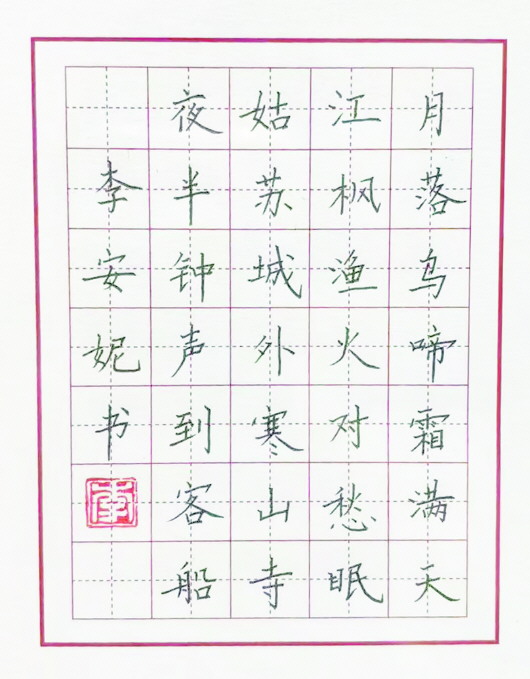 月落乌啼霜满天
江枫渔火对愁眠
姑苏城外寒山寺
夜半钟声到客船
李安妮书
李